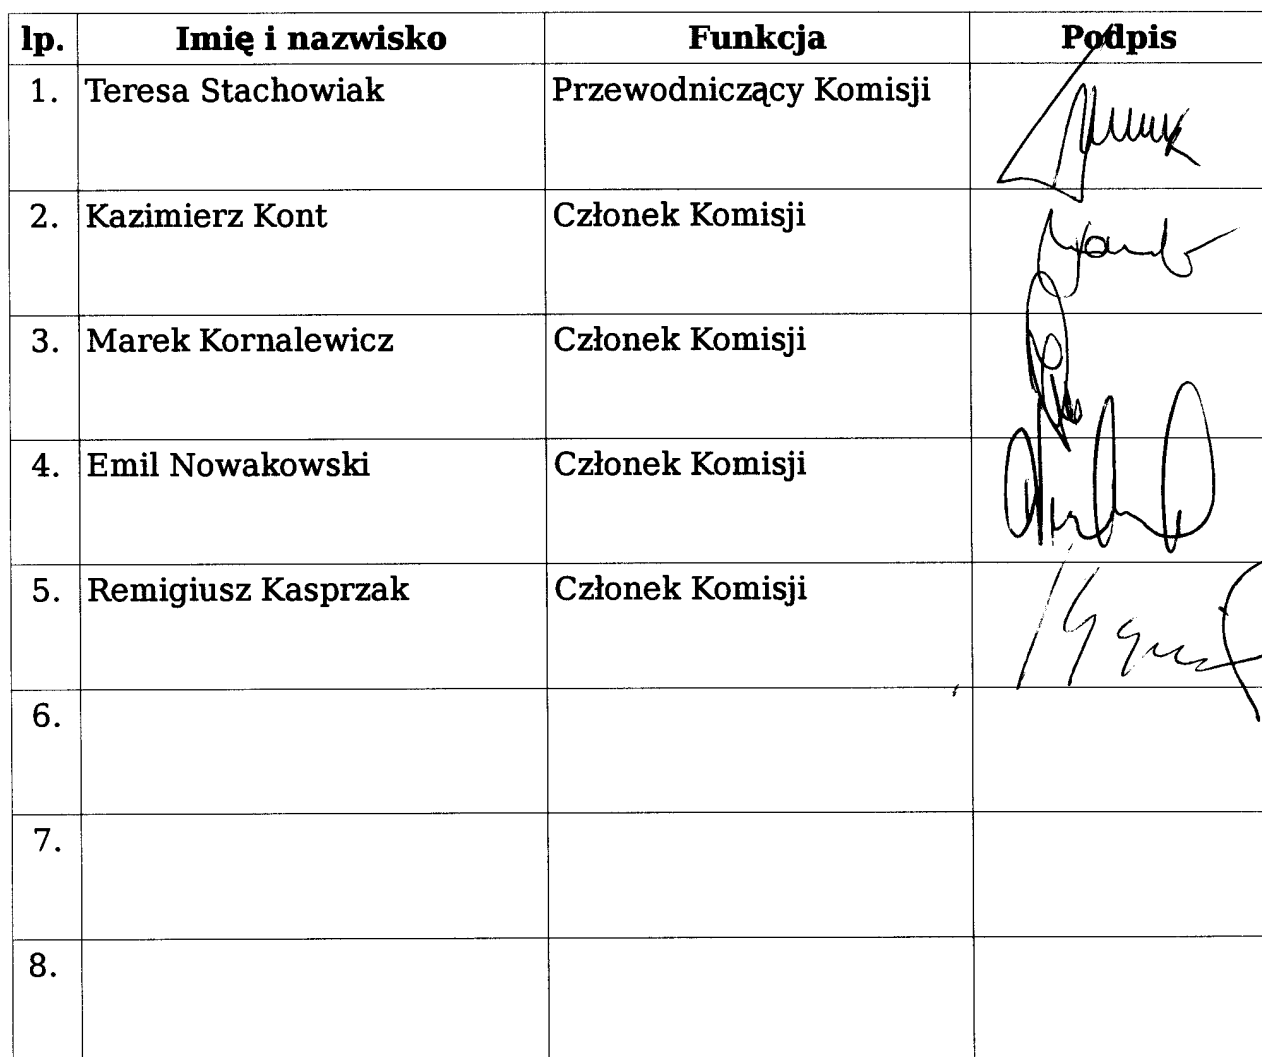 lp. Imię i nazwisko Funkcja Podpis
1. Teresa Stachowiak Przewodniczący Komisji
2. Kazimierz Kont Członek Komisji
3. Marek Kornalewicz Członek Komisji
4. Emil Nowakowski Członek Komisji
5. Remigiusz Kasprzak Członek Komisji
6.
7.
8.